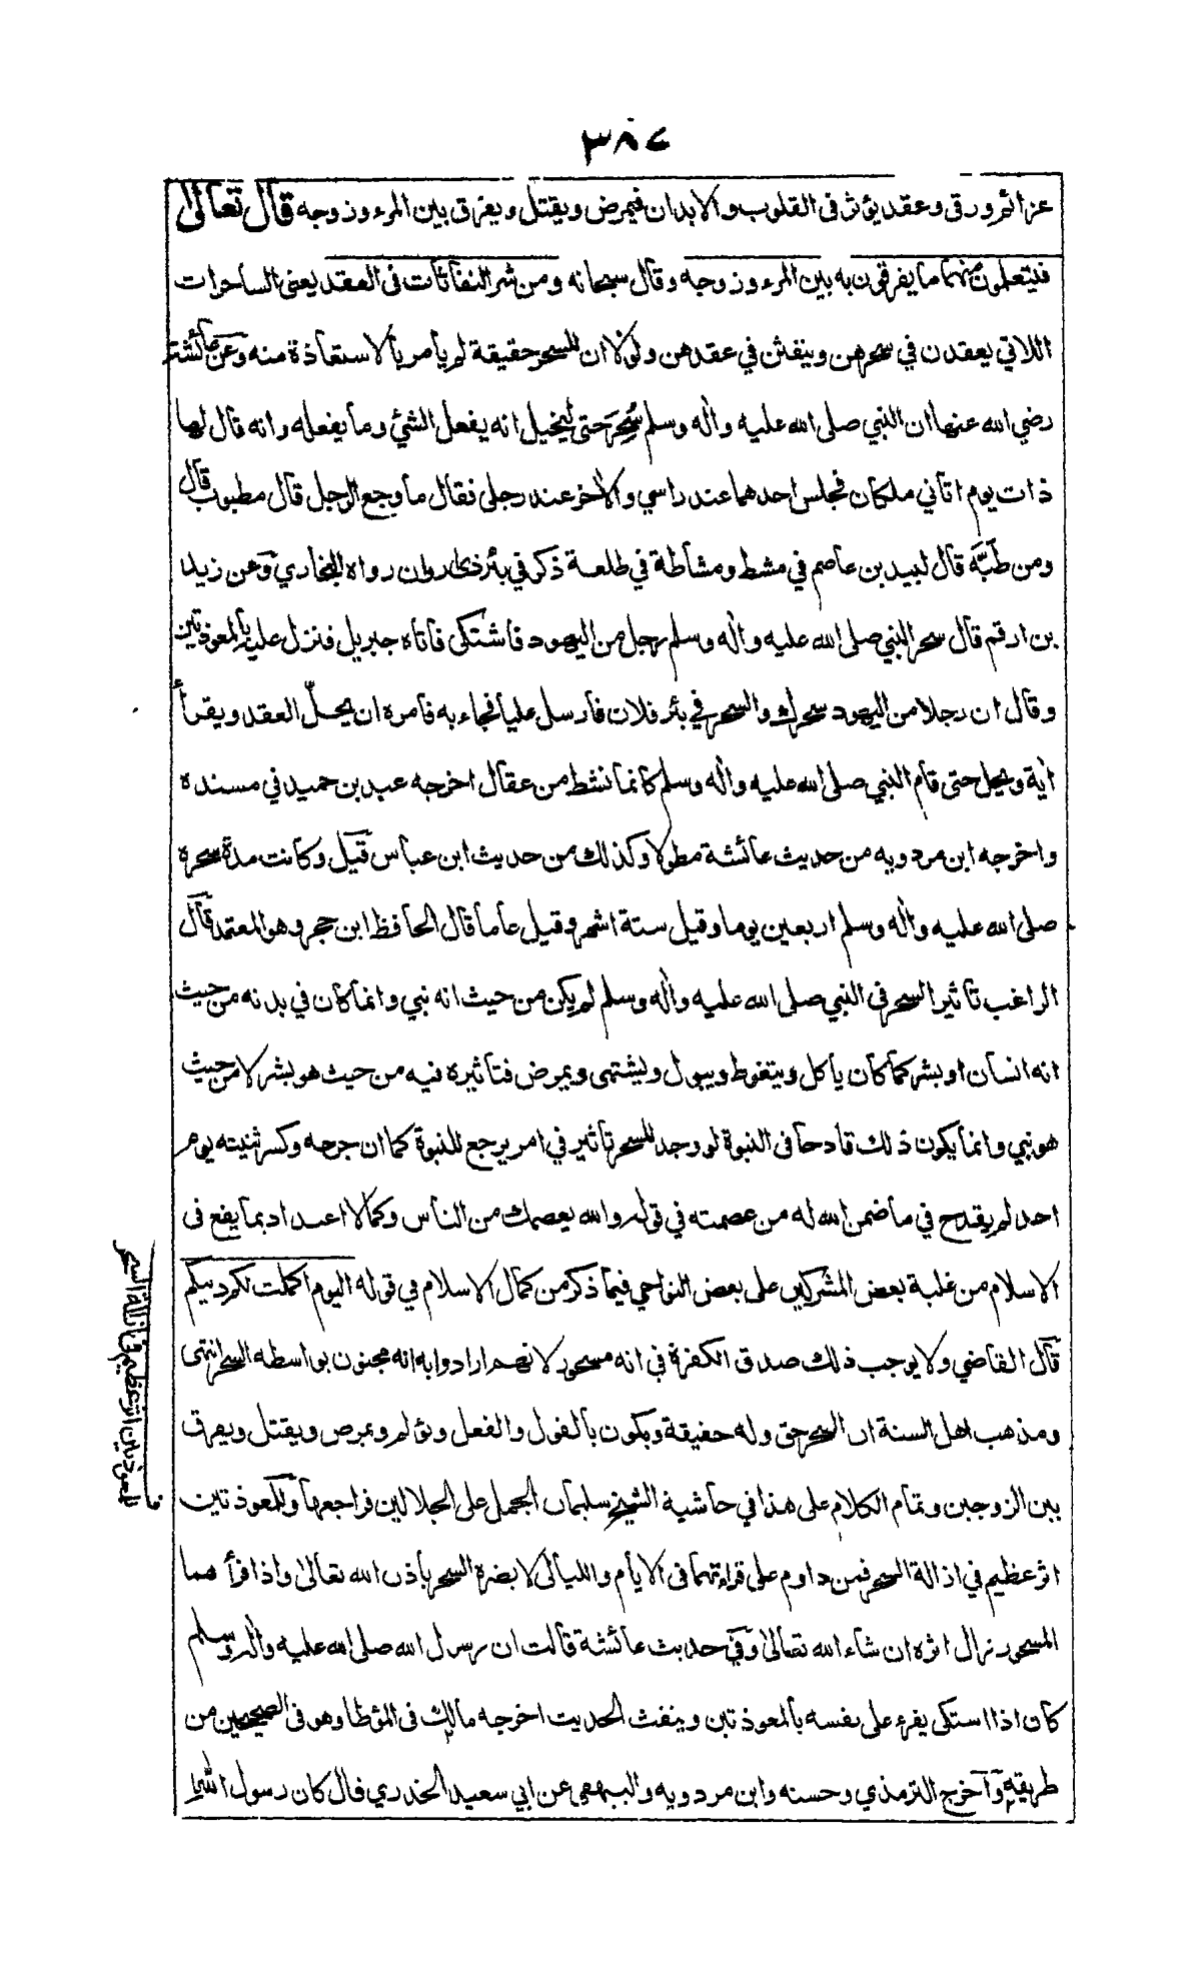 ٣٨٧
عزائم ورقى وعقد يؤثر فى القلوب والابدان فيمرض ويقتل ويفرق بين المرء وزوجه قال تعالىٰ
فيتعلمون منهما ما يفرقون به بين المرء وزوجه وقال سبحانه ومن شر النفاثات فى العقد يعنى الساحرات
اللاتي يعقدن في سحرهن وينفثن في عقدهن ولولا ان للسحر حقيقة لم يأمر بالاستعاذة منه وعن عائشة
رضي الله عنها ان النبي صلى الله عليه واٰله وسلم سُحِرَ حتى ليخيل انه يفعل الشئ وما يفعله وانه قال لها
ذات يوم اتاني ملكان فجلس احدهما عند راسي والاٰخر عند رجلى فقال ما وجع الرجل قال مطبوب قال
ومن طَبَّهُ قال لبيد بن عاصم في مشط ومشاطة في طلعة ذكر في بئر ذى اروان رواه البخاري وعن زيد
بن ارقم قال سحر النبي صلى الله عليه واٰله وسلم رجل من اليهود فاشتكى فاتاه جبريل فنزل عليه بالمعوذتين
وقال ان رجلا من اليهود سحرك والسحر في بئر فلان فارسل عليا فجاء به فامره ان يحلّ العقد ويقرأ
اٰية ويحل حتى قام النبي صلى الله عليه واٰله وسلم كانما نشط من عقال اخرجه عبد بن حميد في مسنده
واخرجه ابن مردويه من حديث عائشة مطولا وكذلك من حديث ابن عباس قيل وكانت مدة سحره
صلى الله عليه واٰله وسلم اربعين يوما وقيل ستة اشهر وقيل عاما قال الحافظ ابن حجر وهو المعتمد قال
الراغب تاثير السحر فى النبي صلى الله عليه واٰله وسلم لم يكن من حيث انه نبي وانما كان في بدنه من حيث
انه انسان او بشر كما كان يأكل ويتغوط ويبول ويشتهى ويمرض فتأثيره فيه من حيث هو بشر لا من حيث
هو نبي وانما يكون ذلك قادحا فى النبوة لو وجد للسحر تأثير في امر يرجع للنبوة كما ان جرحه وكسر ثنيته يوم
احد لم يقدح في ما ضمن الله له من عصمته في قوله والله يعصمك من الناس وكما لا اعتداد بما يقع فى
الاسلام من غلبة بعض المشركين على بعض النواحي فيما ذكر من كمال الاسلام في قوله اليوم اكملت لكم دينكم
قال القاضي ولا يوجب ذلك صدق الكفرة فى انه مسحور لانهم ارادوا به انه مجنون بواسطة السحر انتهى
ومذهب اهل السنة ان السحر حق وله حقيقة ويكون بالقول والفعل ويؤلم ويمرض ويقتل ويفرق
بين الزوجين وتمام الكلام على هذا في حاشية الشيخ سليمان الجمل على الجلالين فراجعها وللمعوذتين
اثر عظيم في ازالة السحر فمن داوم على قراءتهما فى الايام والليالى لا يضره السحر باذن الله تعالىٰ واذا قرأهما
المسحور زال اثره ان شاء الله تعالىٰ وفي حديث عائشة قالت ان رسول الله صلى الله عليه واٰله وسلم
كان اذا اشتكى يقرء على نفسه بالمعوذتين وينفث الحديث اخرجه مالك فى المؤطا وهو فى الصحيحين من
طريقه واخرج الترمذي وحسنه وابن مردويه والبيهقى عن ابي سعيد الخدري قال كان رسول الله
للمعوذتين اثر عظيم فى ازالة السحر